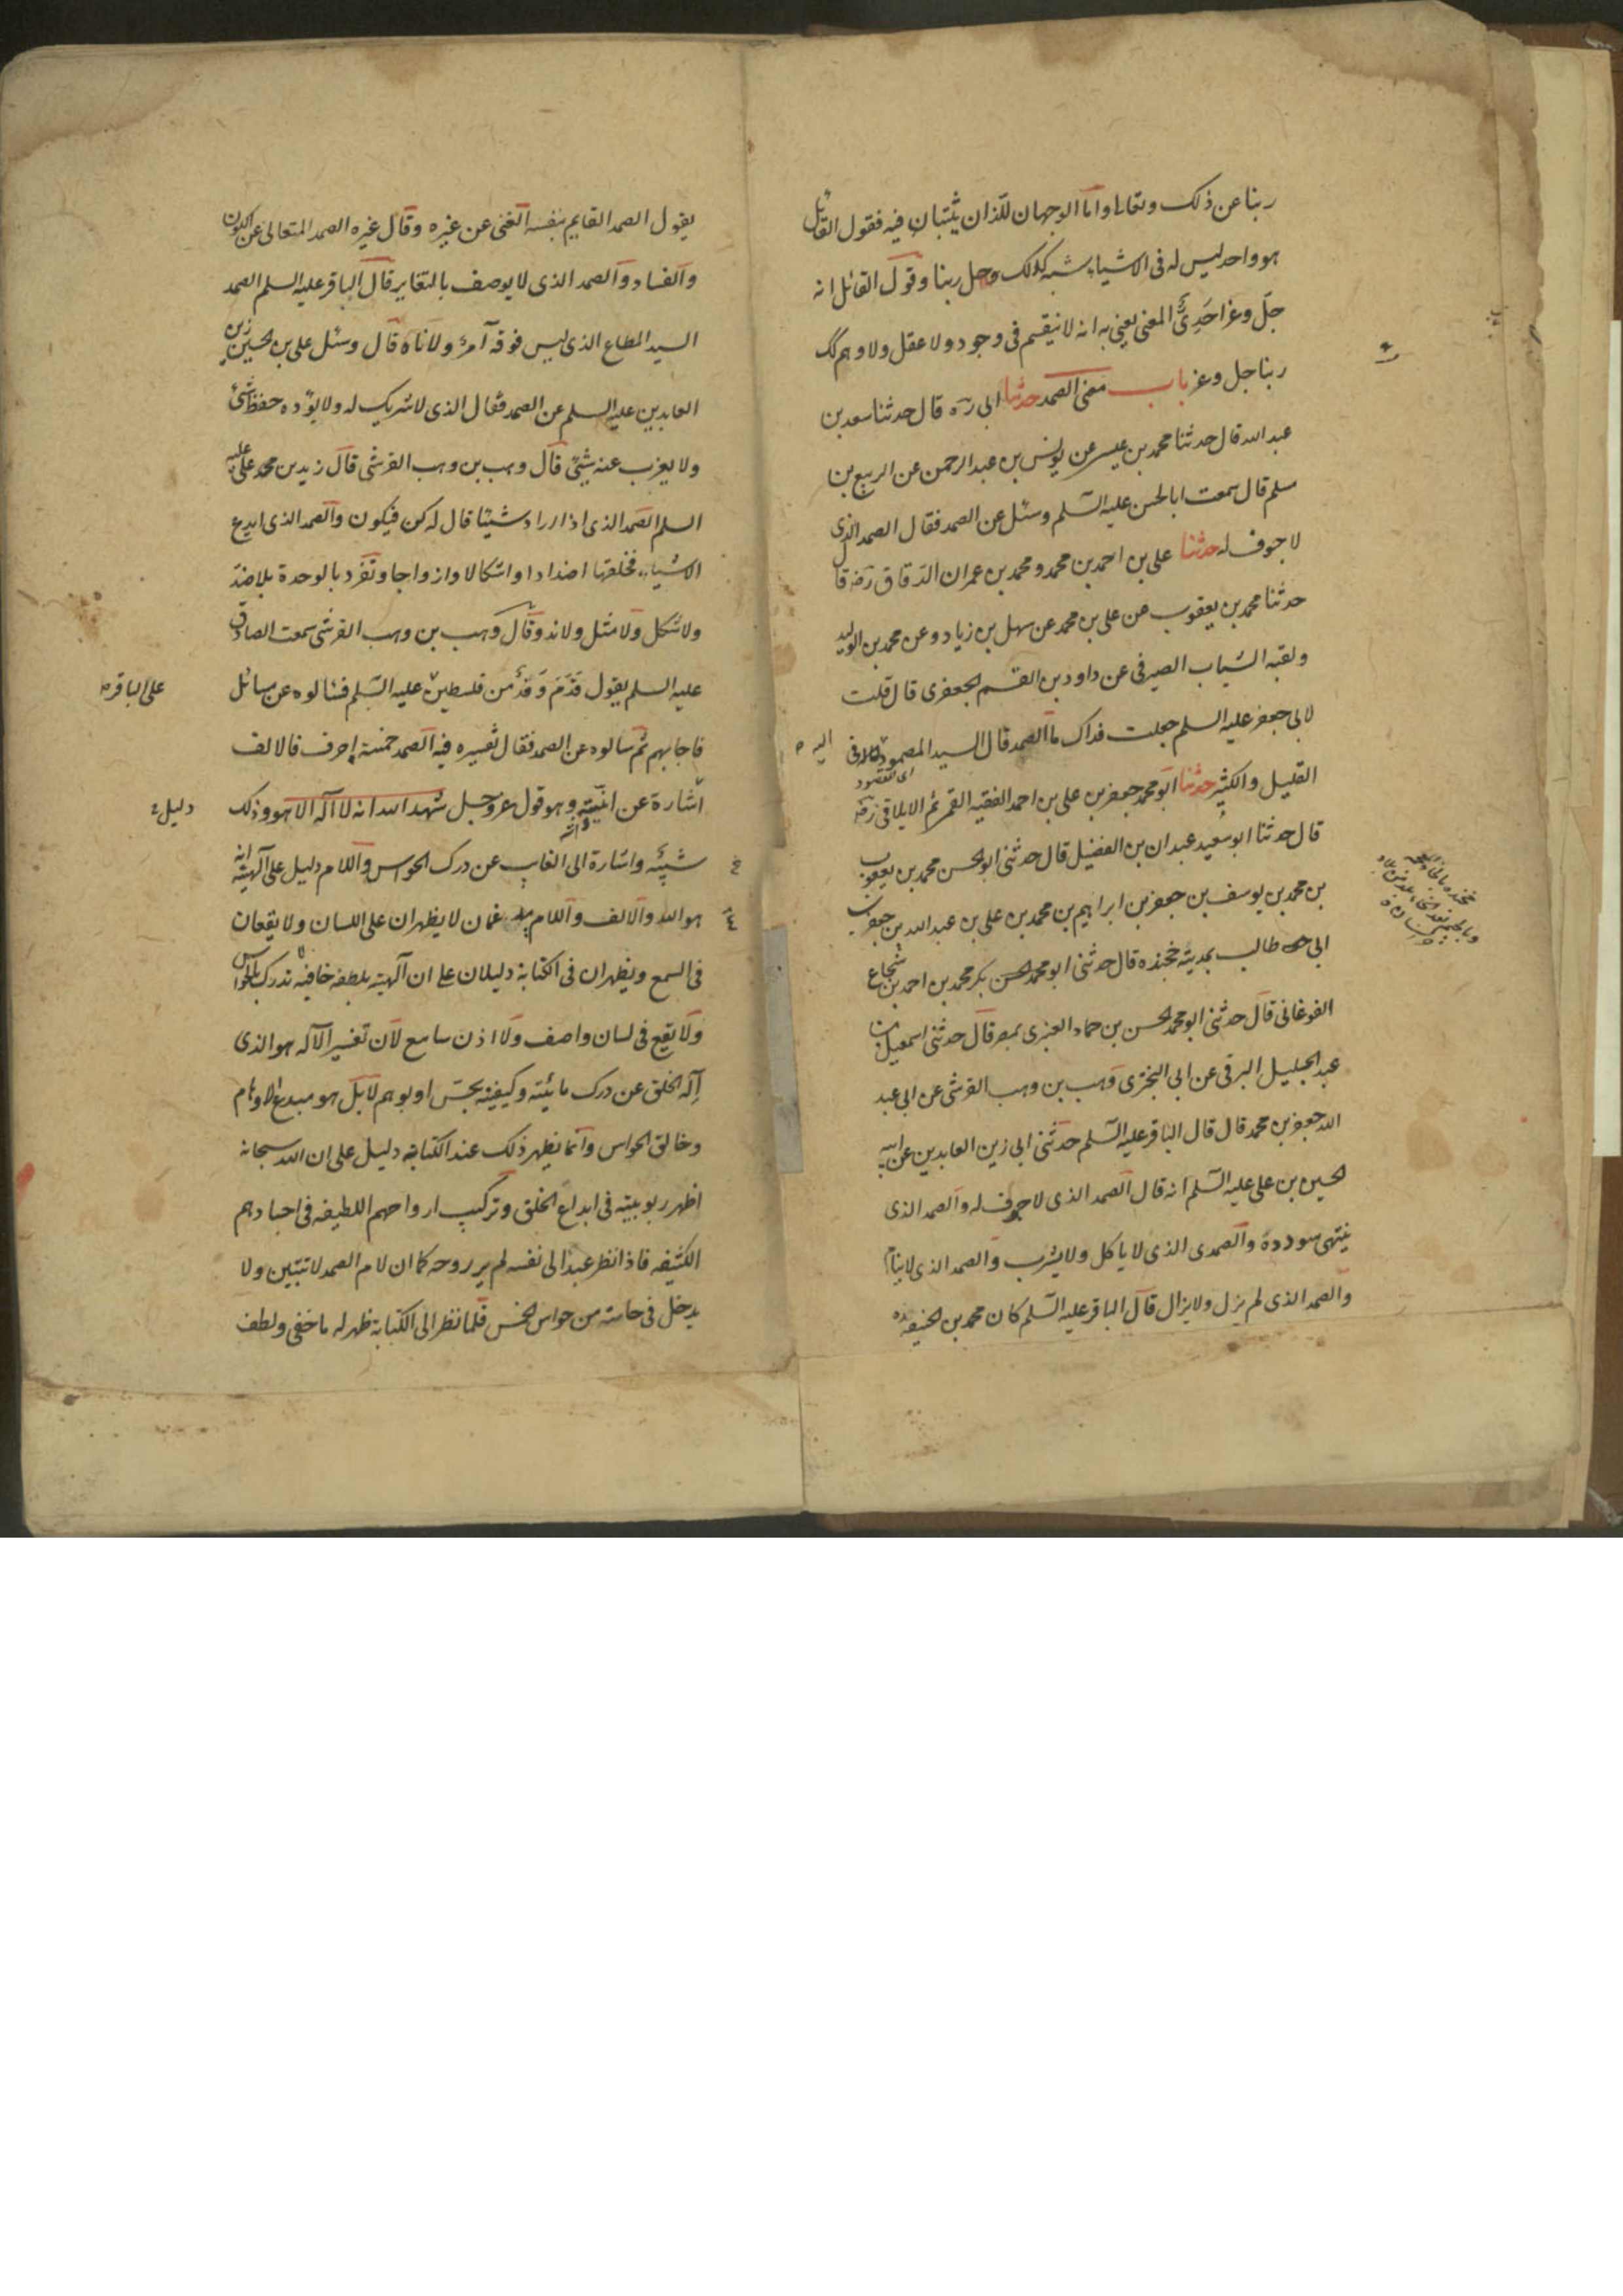 ربنا عن ذلك وتعالى واما الوجهان للذان يثبتان فيه فقول القائل
هو واحد ليس له فى الاشياء شبه كذلك وجل ربنا وقول القائل انه
جل وعز احدىّ المعنى يعنى به انه لا ينقسم فى وجود ولا عقل ولا وهم كك
ربنا جل وعز باب معنى الصمد حدثنا ابى ره قال حدثنا سعد بن
عبد الله قال حدثنا محمد بن عيسى عن يونس بن عبد الرحمن عن الربيع بن
مسلم قال سمعت ابا الحسن عليه السلم وسئل عن الصمد فقال الصمد الذى
لا جوف له حدثنا على بن احمد بن محمد ومحمد بن عمران الدقاق رضه قال
حدثنا محمد بن يعقوب عن على بن محمد عن سهل بن زياد وعن محمد بن الوليد
ولقبه الشباب الصيرفى عن داود بن القسم الجعفرى قال قلت
لابى جعفر عليه السلم جعلت فداك ما الصمد قال السيد المصمود فى
اليه
اى المقصود
القليل والكثير حدثنا ابو محمد جعفر بن على بن احمد الفقيه القمى ثم الايلاقى رضه
قال حدثنا ابو سعيد عبدان بن الفضيل قال حدثنى ابو الحسن محمد بن يعقوب
بن محمد بن يوسف بن جعفر بن ابراهيم بن محمد بن على بن عبد الله بن جعفر بن
ابى طالب بمدينة خجنده قال حدثنى ابو محمد الحسن بكر محمد بن احمد بن شجاع
الفرغانى قال حدثنى ابو محمد الحسن بن حماد العنبرى بمصر قال حدثنى اسمعيل بن
عبد الجليل البرقى عن ابى البخترى وهب بن وهب القرشى عن ابى عبد
الله جعفر بن محمد قال قال الباقر عليه السلم حدثنى ابى زين العابدين عن ابيه
الحسين بن على عليه السلم انه قال الصمد الذى لا جوف له والصمد الذى
ينتهى سودده والصمدى الذى لا ياكل ولا يشرب والصمد الذى لا ينام
والصمد الذى لم يزل ولا يزال قال الباقر عليه السلم كان محمد بن الحنيفه
يقول الصمد القايم بنفسه الغنى عن غيره وقال غيره الصمد المتعالى عن الكون
والفساد والصمد الذى لا يوصف بالتغاير قال الباقر عليه السلم الصمد
السيد المطاع الذى ليس فوقه آمرٌ ولا ناه قال وسئل على بن الحسين زين
العابدين عليه السلم عن الصمد فقال الذى لا شريك له ولا يؤده حفظ شئ
ولا يعزب عنه شئ قال وهب بن وهب القرشى قال زيد بن محمد على عليه
السلم الصمد الذى اذا اراد شيئا قال له كن فيكون والصمد الذى ابدع
الاشياء فخلقها اضدادا واشكالا وازواجا وتفرد بالوحدة بلا ضد
ولا شكل ولا مثل ولا ند وقال وهب بن وهب القرشى سمعت الصادق
عليه السلم يقول قدم وفد من فلسطين عليه السلم فسالوه عن مسائل
على الباقر
فاجابهم ثم سالوه عن الصمد فقال تفسيره فيه الصمد خمسة احرف فالالف
اشارة عن انيته وهو قول عز وجل شهد الله انه لا اله الا هو وذلك
دليل
شبيه واشارة الى الغايب عن درك الحواس واللام دليل على آلهيته
هو الله والالف واللام غمان لا يظهران على اللسان ولا يقعان
فى السمع ويظهران فى الكتابة دليلان على ان آلهيته بلطفه خافيه لا تدرك بالحواس
ولا يقع فى لسان واصف ولا اذن سامع لان تفسير الآله هو الذى
اله الخلق عن درك مائيته وكيفيته بحس او بوهم لا بل هو مبدع الاوهام
وخالق الحواس وانما يظهر ذلك عند الكتابة دليل على ان الله سبحانه
اظهر ربوبيته فى ابداع الخلق وتركيب ارواحهم اللطيفه فى اجسادهم
الكثيفه فاذا نظر عبدٌ الى نفسه لم ير روحه كما ان لام الصمد لا تتبين ولا
يدخل فى حاسة من حواس الخمس فلما نظر الى الكتابة ظهر له ما خفى ولطف